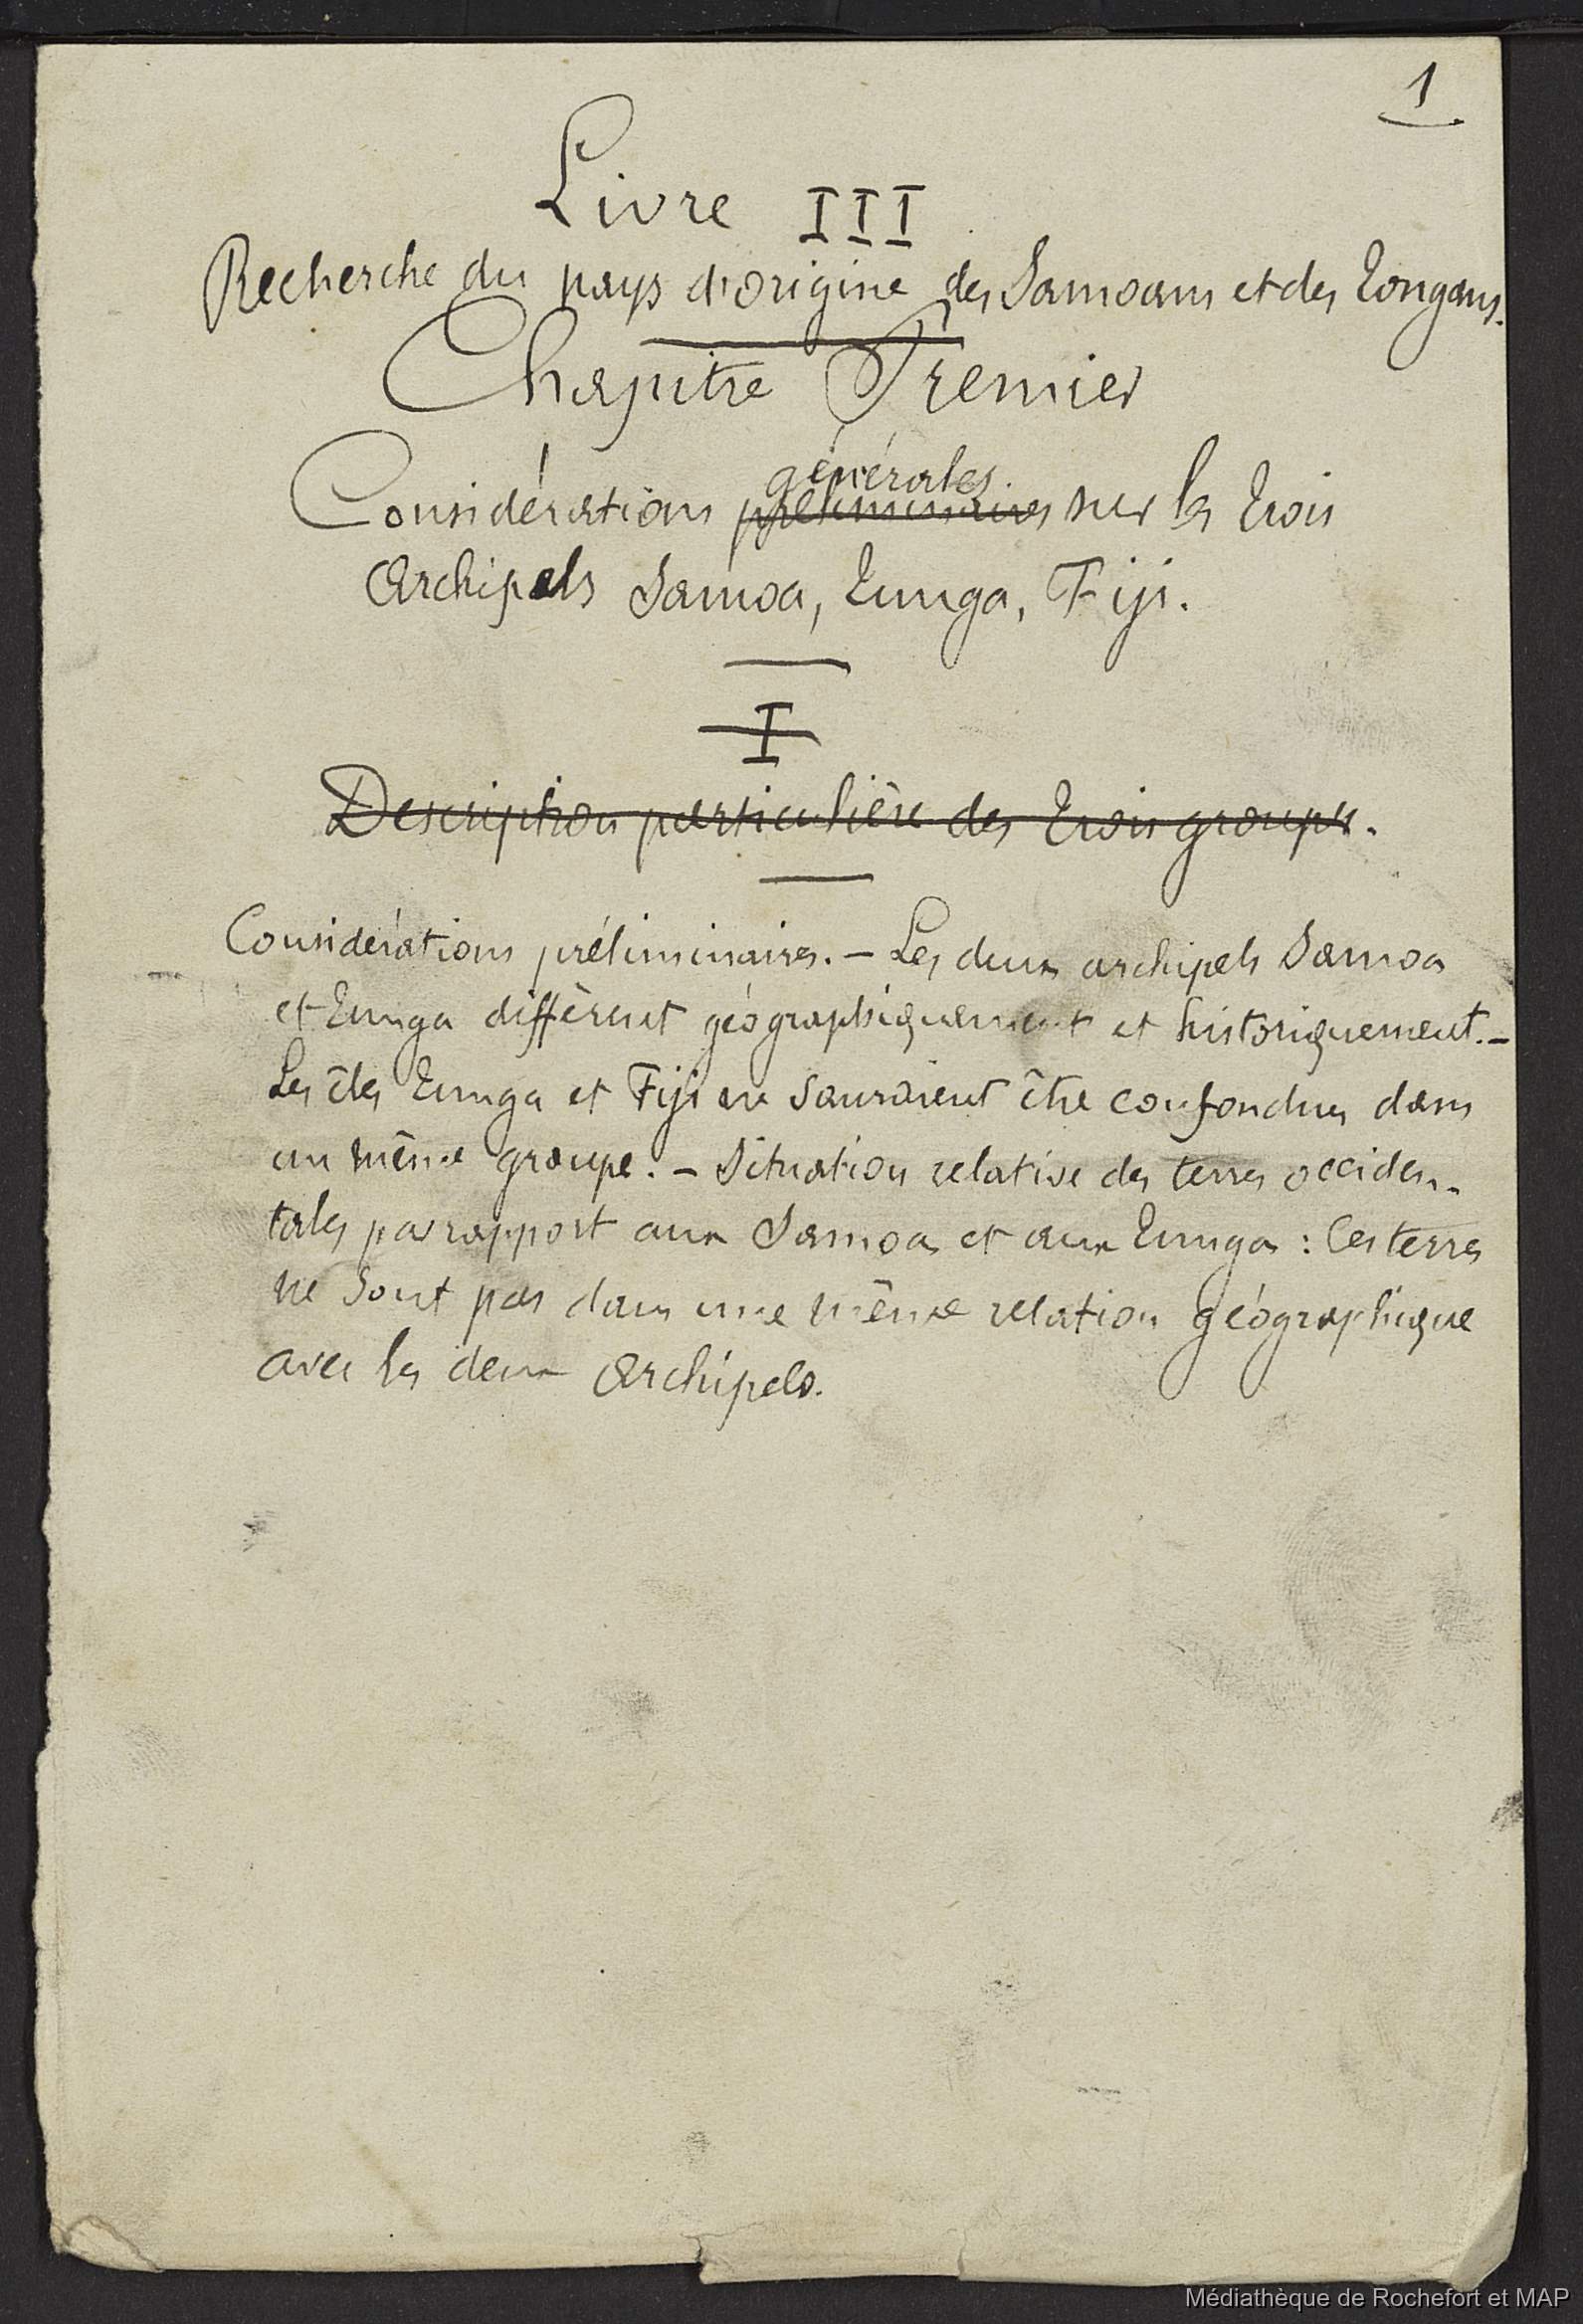 1
Livre III
Recherche du pays d'origine des Samoans et des Tongans.
Chapitre Premier
générales
Considérations préliminaires sur les trois
Archipels Samoa, Tunga, Fiji.
I
Description particulière des trois groupes.
Considérations préliminaires. – Les deux archipels Samoa
et Tunga diffèrent géographiquement et historiquement. –
Les îles Tunga et Fiji ne sauraient être confondues dans
un même groupe. – Situation relative des terres occiden-
tales par rapport aux Samoa et aux Tunga : Ces terres
ne sont pas dans une même relation géographique
avec les deux Archipels.
Médiathèque de Rochefort et MAP